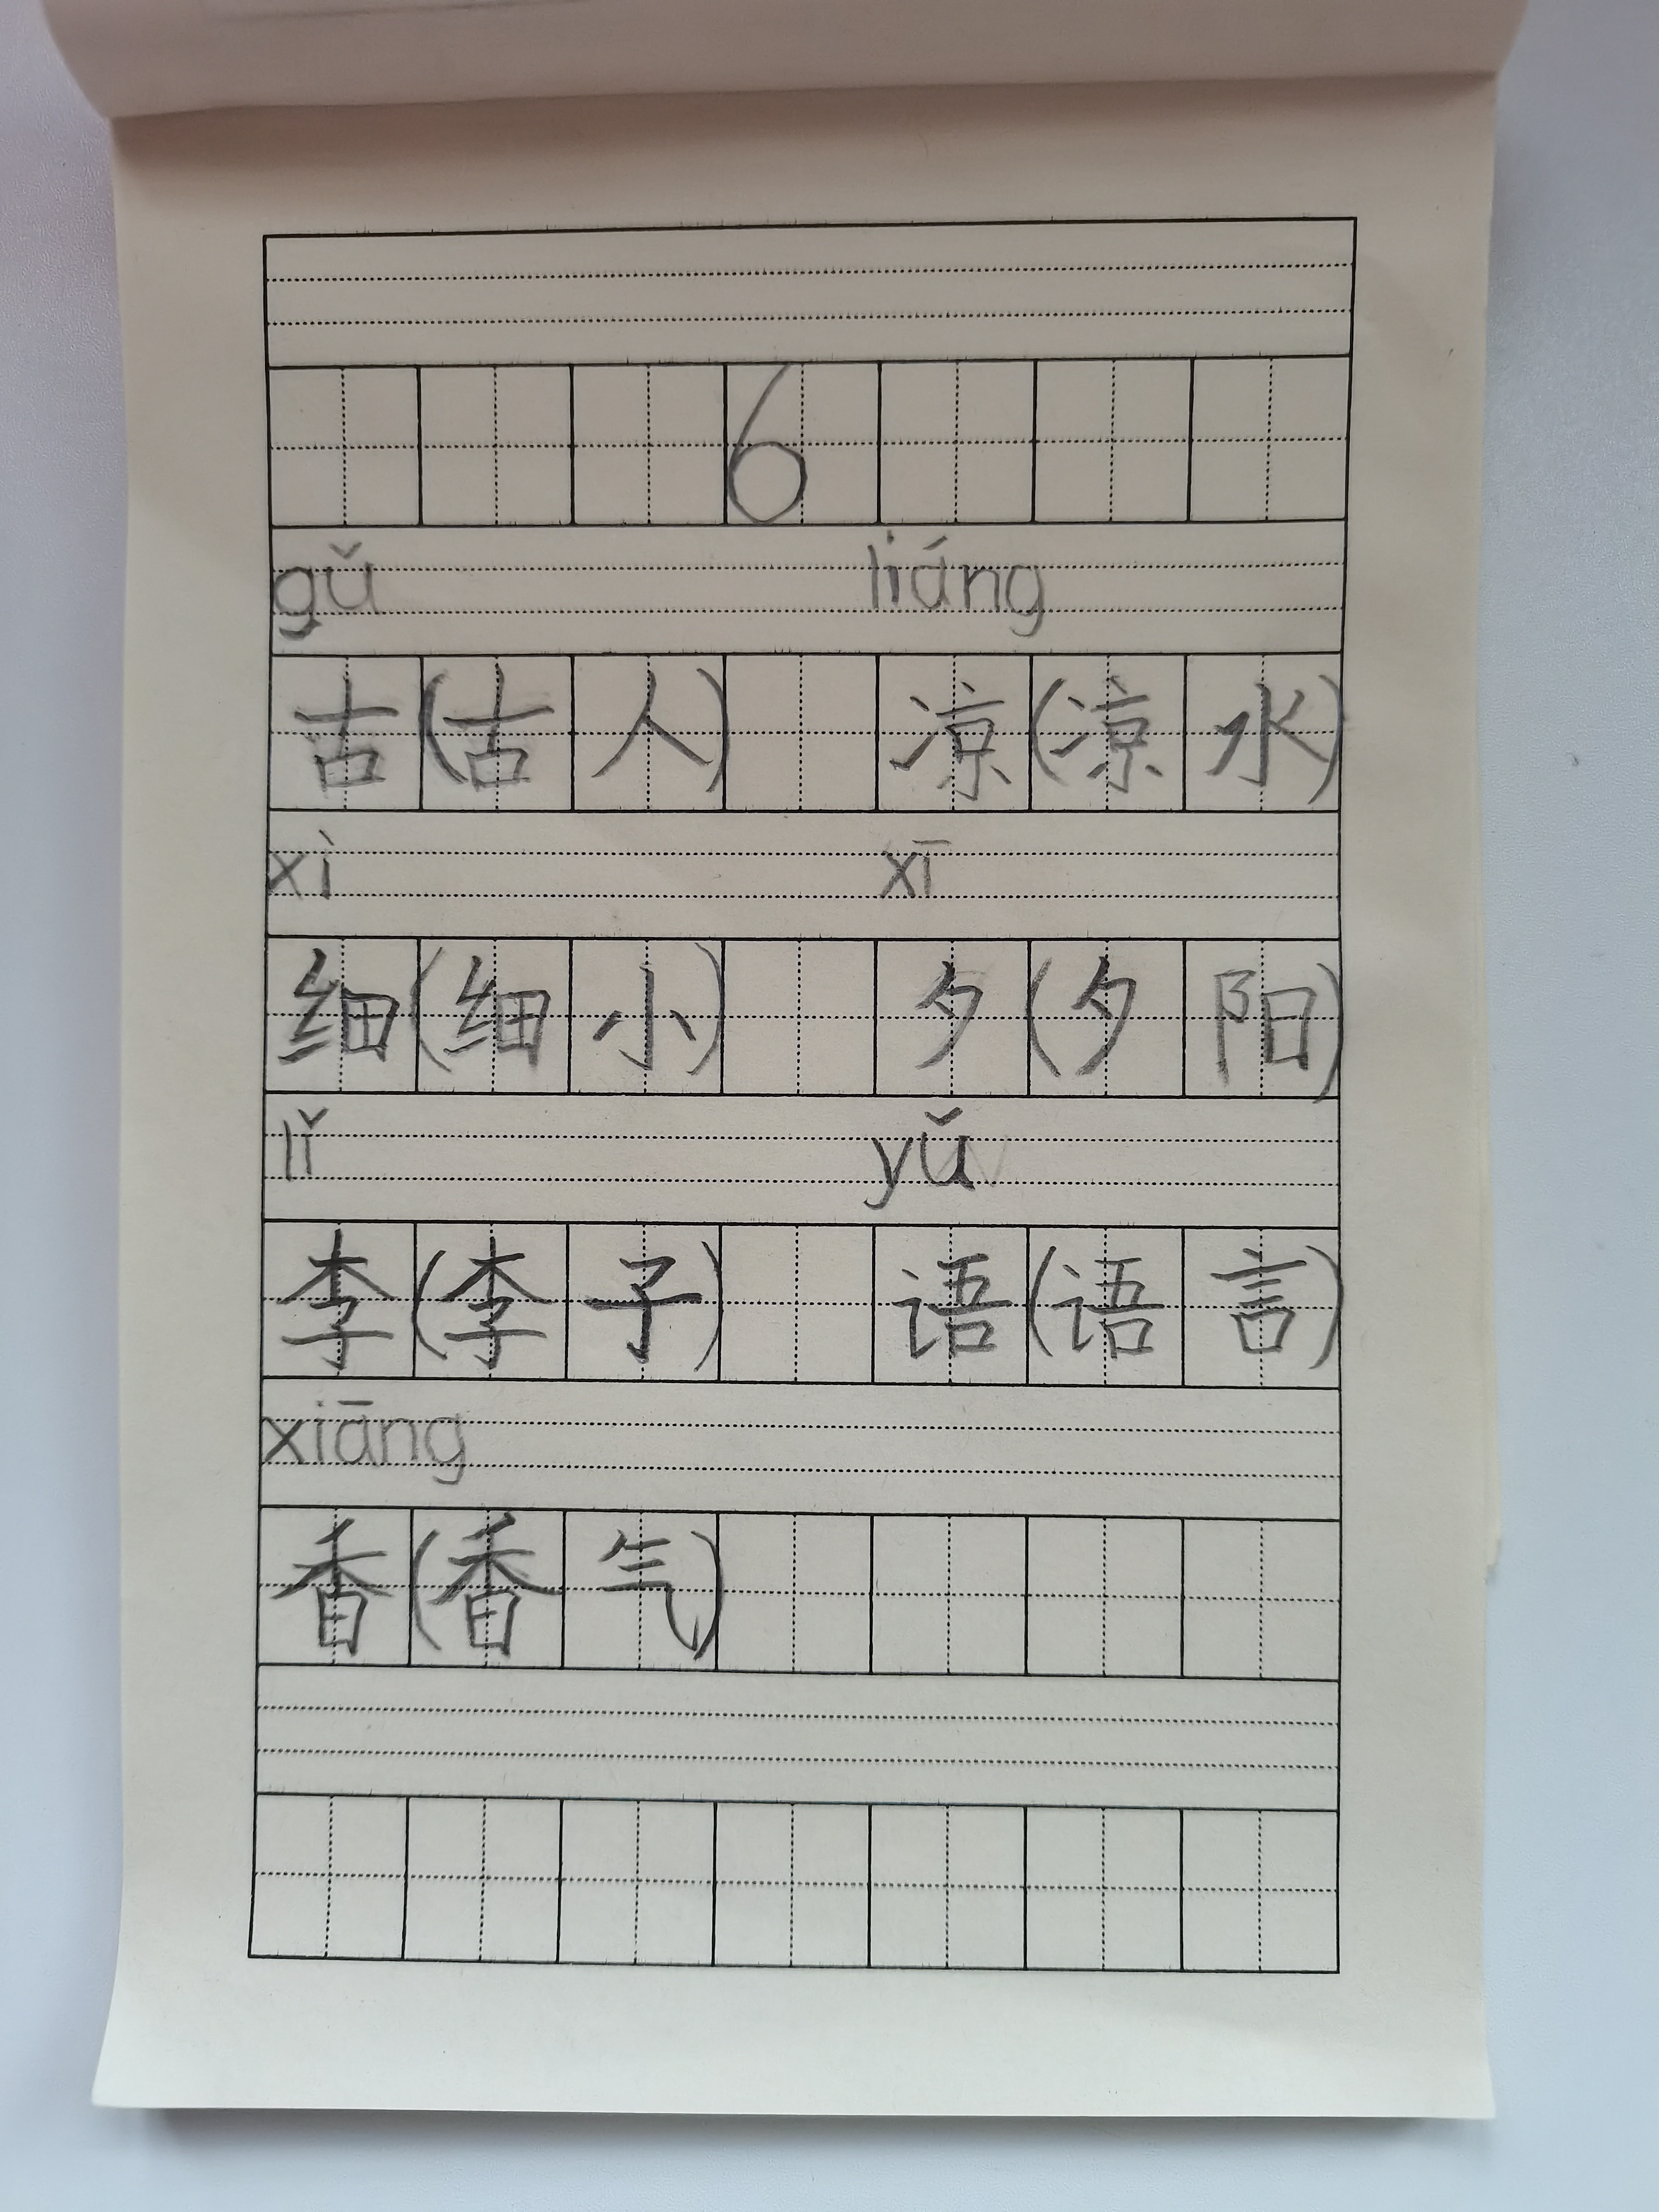 6
gǔ liáng
古(古人) 凉(凉水)
xì xī
细(细小)夕(夕阳)
lǐ yǔ
李(李子) 语(语言)
xiāng
香(香气)